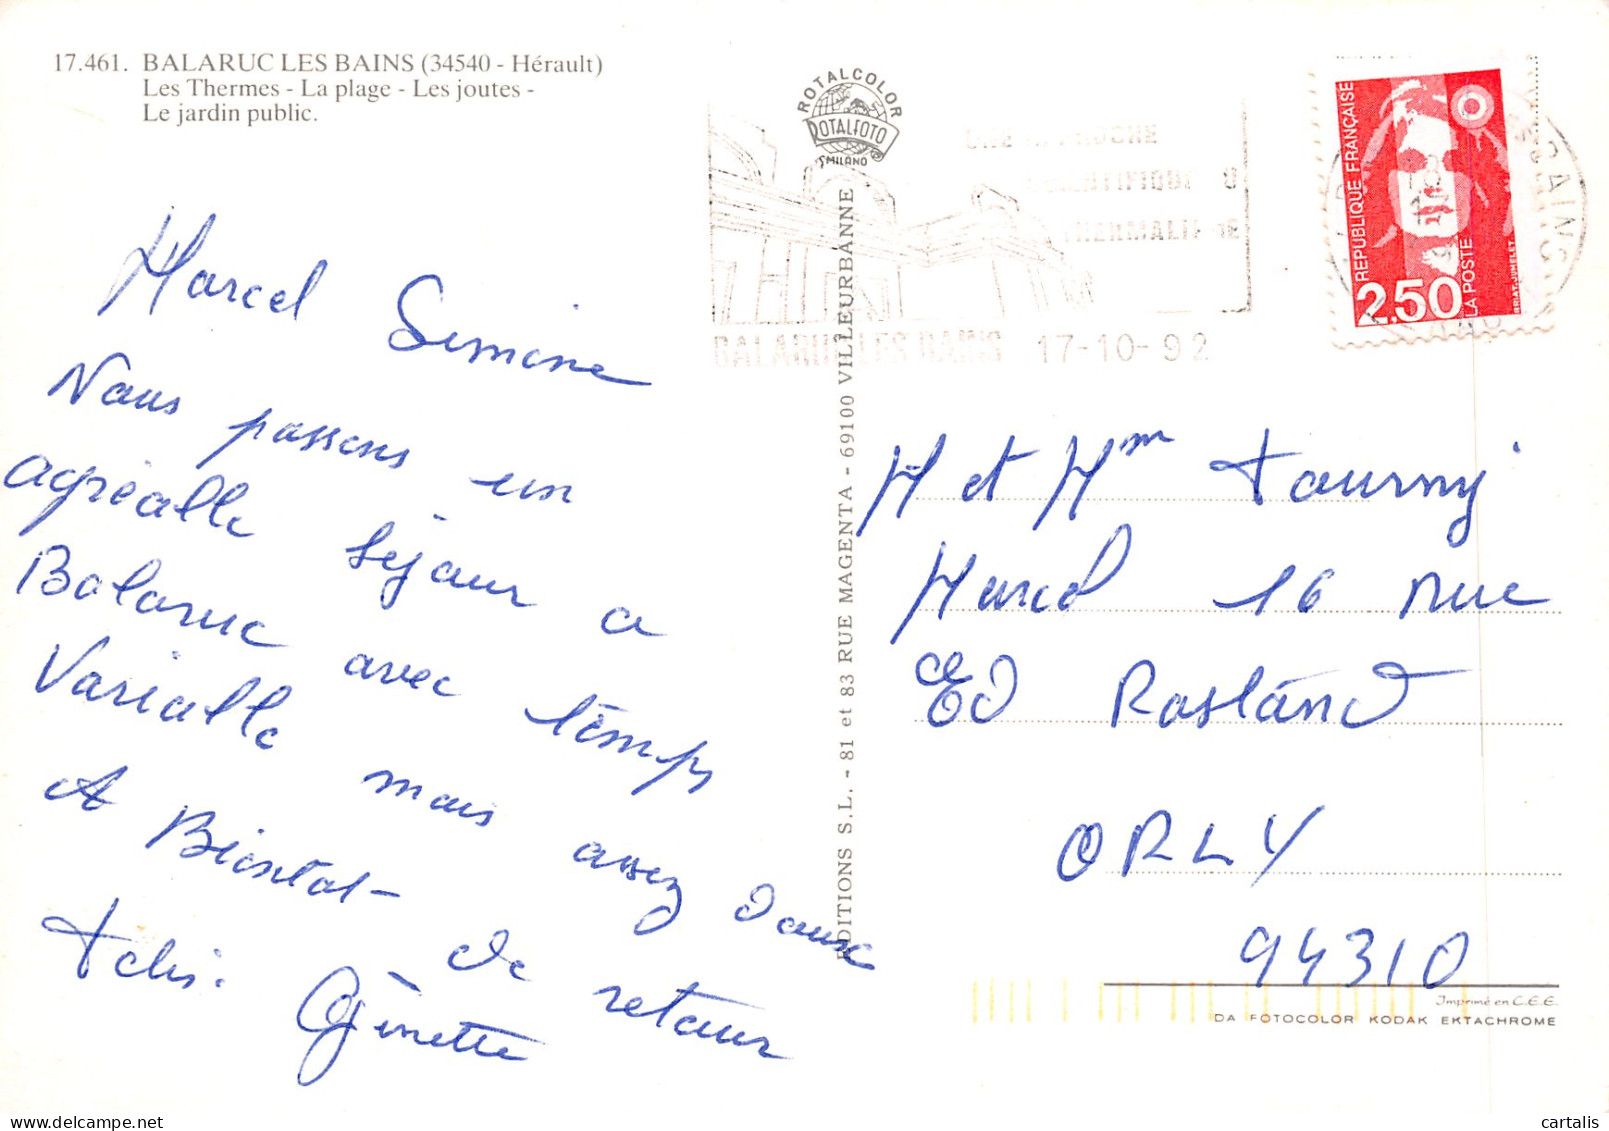 17.461. BALARUC LES BAINS (34540 - Hérault)
Les Thermes - La plage - Les joutes -
Le jardin public.
ROTALCOLOR
ROTALFOTO
MILANO
THERMALISME
BALARUC LES BAINS 17-10-92
REPUBLIQUE FRANÇAISE
2,50
LA POSTE
Marcel Simone
Nous passons un
agréable séjour a
Balaruc avec temps
Variable mais assez doux
A Bientot de retour
Félis. Ginette
EDITIONS S.L. - 81 et 83 RUE MAGENTA - 69100 VILLEURBANNE
M et Mm Tourny
Marcel 16 rue
Ed Rostand
ORLY
94310
Imprimé en C.E.E.
DA FOTOCOLOR KODAK EKTACHROME
cartalis